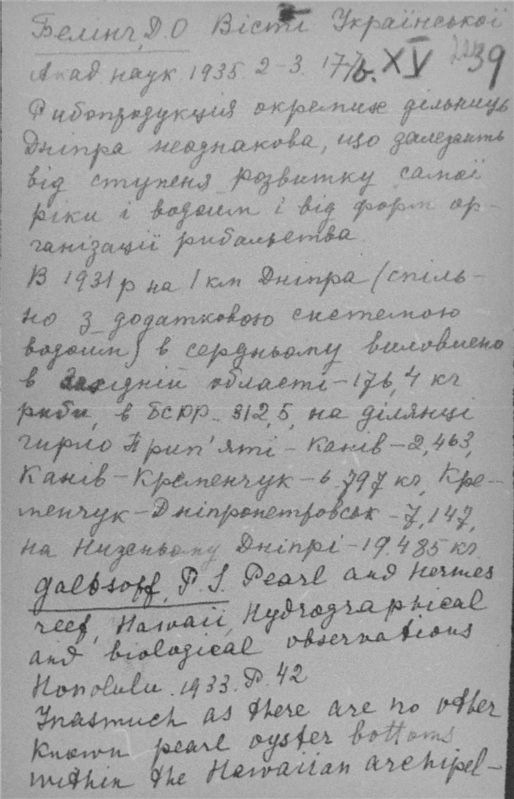 Белінг, Д.О Вісті Української
Акад. наук 1935 2-3. 177 XV 39
Рибопродукція окремих дільниць
Дніпра неоднакова, що залежить
від ступеня розвитку самої
ріки і водойм і від форм ор-
ганізації рибальства
В 1931 р на 1 км Дніпра (спіль-
но з додатковою системою
водойм) в середньому виловлено
в Західній області - 176,4 кг
риби, в БСРР - 812,5, на ділянці
гирло Прип'яті - Канів - 2,463,
Канів - Кременчук - 6,797 кг, Кре-
менчук - Дніпропетровськ - 7,147,
на Нижньому Дніпрі - 19.485 кг
Galtsoff, P.S. Pearl and Hermes
reef, Hawaii, Hydrographical
and biological observations
Honolulu. 1933. P. 42
Inasmuch as there are no other
known pearl oyster bottoms
within the Hawaiian archipel-